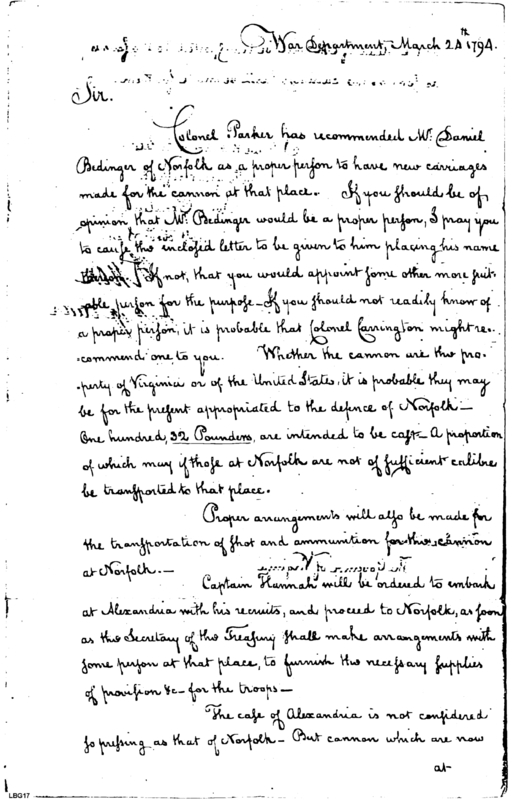 War Department, March 24th 1794.
Sir.
Colonel Parker has recommended Mr. Daniel
Bedinger of Norfolk as a proper person to have new carriages
made for the cannon at that place. If you should be of
opinion that Mr. Bedinger would be a proper person, I pray you
to cause the inclosed letter to be given to him placing his name
If not, that you would appoint some other more suit-
able person for the purpose - If you should not readily know of
a proper person, it is probable that Colonel Carrington might re-
-commend one to you. Whether the cannon are the pro-
-perty of Virginia or of the United States, it is probable they may
be for the present appropriated to the defence of Norfolk -
One hundred, 32 Pounders, are intended to be cast - A proportion
of which may if those at Norfolk are not of sufficient calibre
be transported to that place.
Proper arrangements will also be made for
the transportation of shot and ammunition for the cannon
at Norfolk. -
Captain Hannah will be ordered to embark
at Alexandria with his recruits, and proceed to Norfolk, as soon
as the Secretary of the Treasury shall make arrangements with
some person at that place, to furnish the necessary supplies
of provision &c - for the troops -
The case of Alexandria is not considered
so pressing as that of Norfolk - But cannon which are now
at -
LBG17